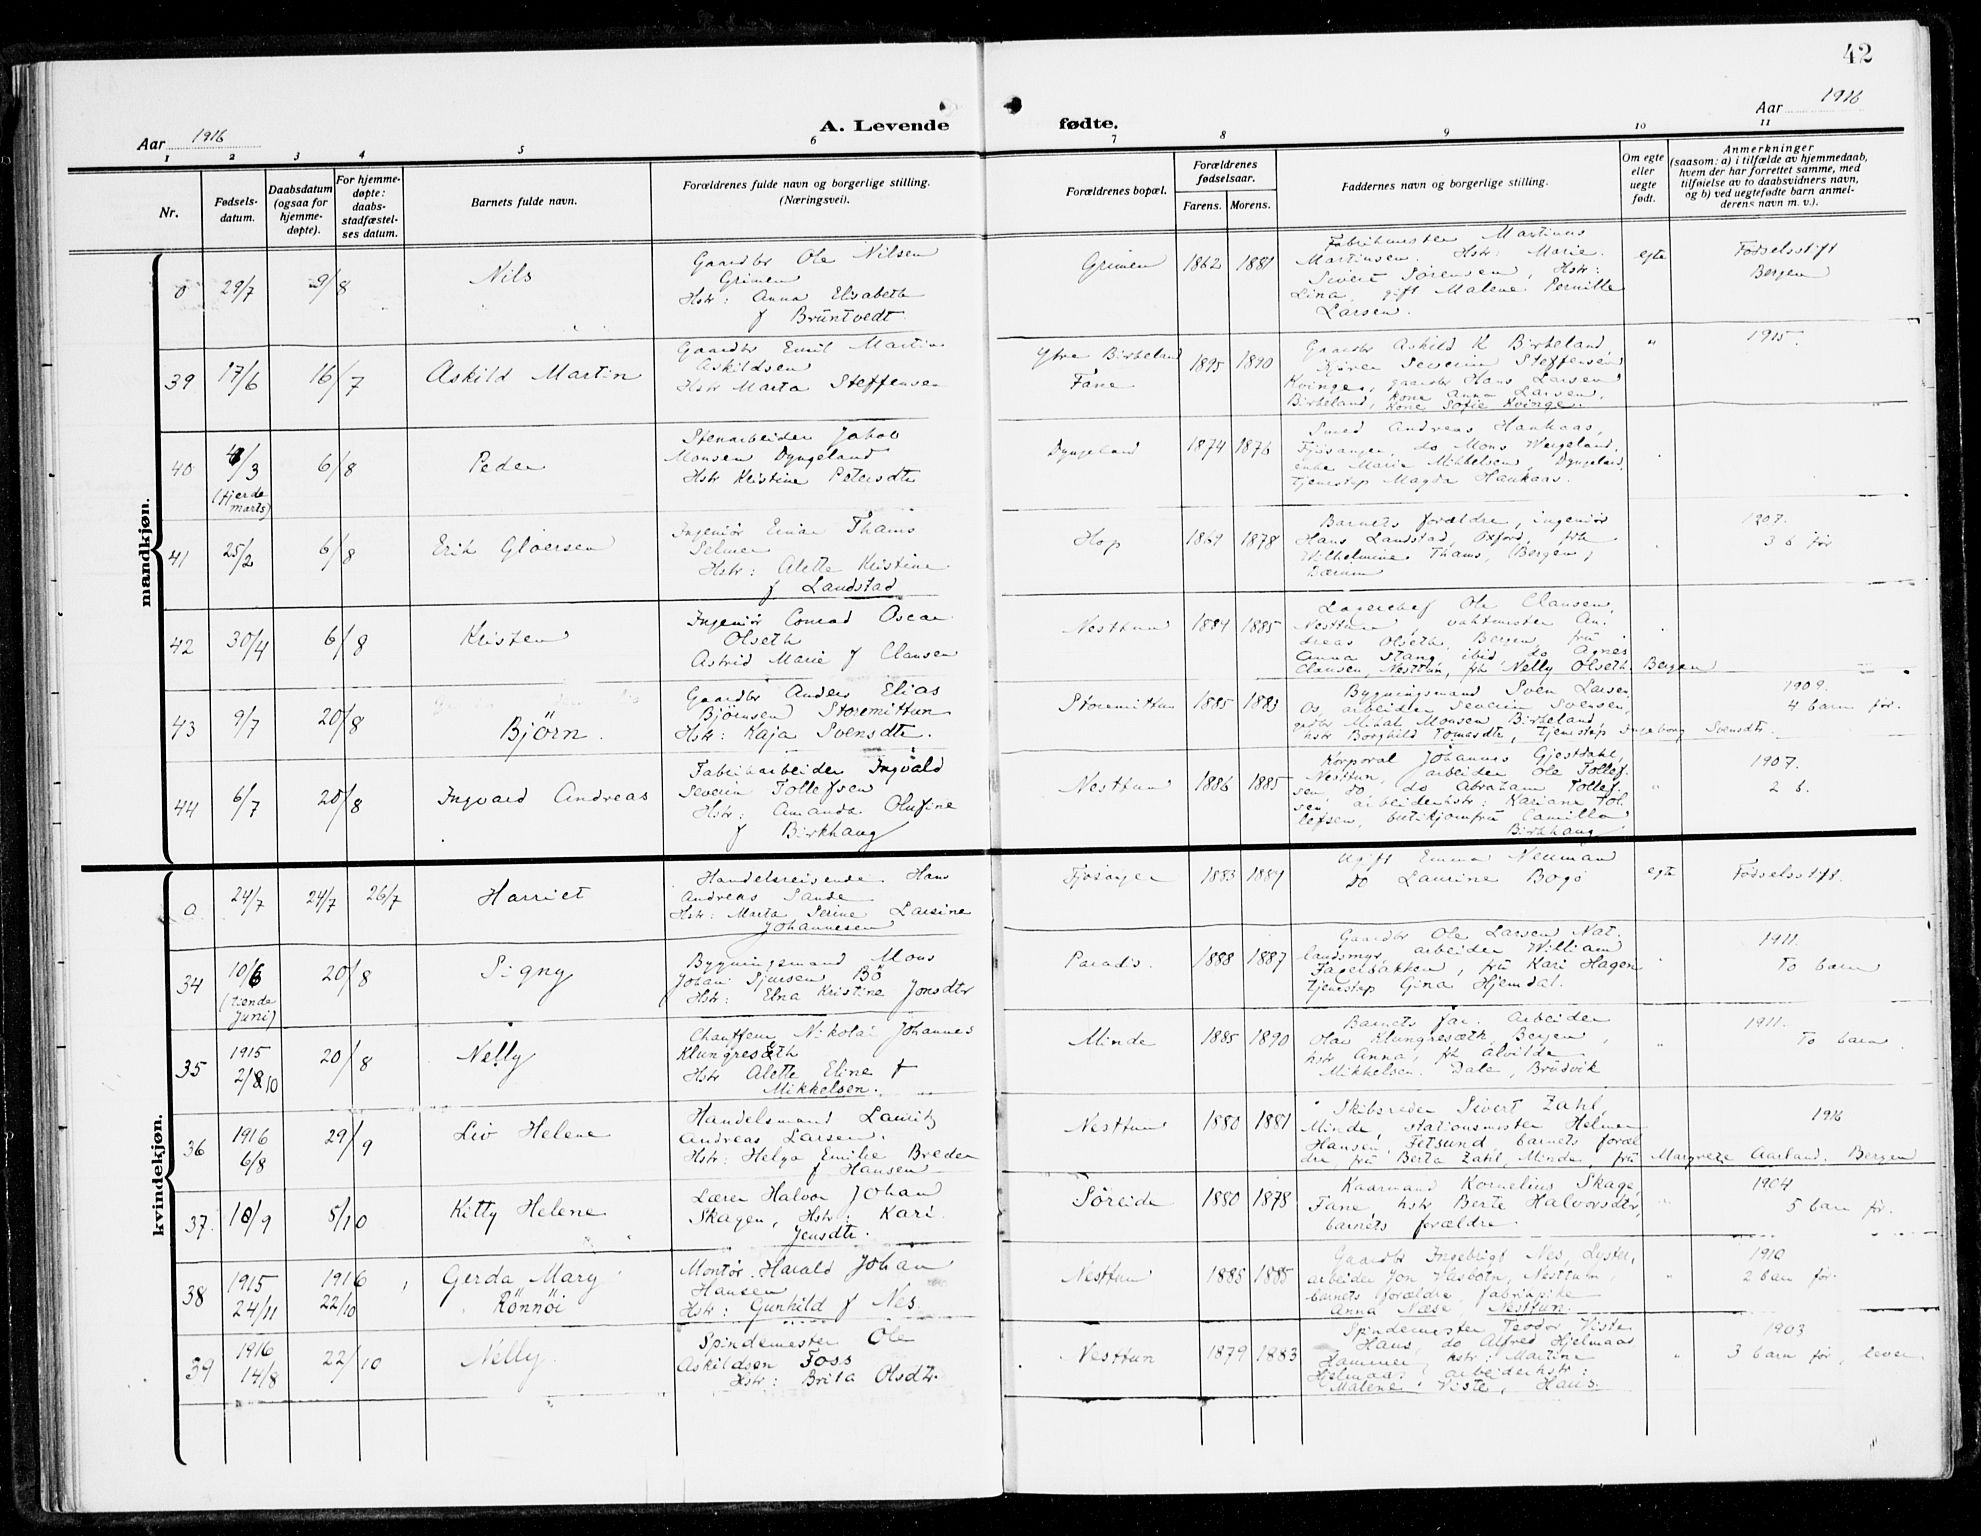 42
Aar 1916
A. Levende fødte.
Aar 1916
1 2 3 4 5 6 7 8 9 10 11
Nr.
Fødsels-
datum.
Daabsdatum
(ogsaa for
hjemme-
døpte).
For hjemme-
døpte:
daabs-
stadfæstel-
ses datum.
Barnets fulde navn.
Forældrenes fulde navn og borgerlige stilling.
(Næringsvei).
Forældrenes bopæl.
Forældrenes
fødselsaar.
Farens. Morens.
Faddernes navn og borgerlige stilling.
Om egte
eller
uegte
født.
Anmerkninger
(saasom: a) i tilfælde av hjemmedaab,
hvem der har forrettet samme, med
tilføielse av to daabsvidners navn,
og b) ved uegtefødte barn anmel-
derens navn m. v.).
mandkjøn.
0 29/7 9/8 Nils
Gaardbr Ole Nilsen
Grimen
Hstr: Anna Elisabeth
f Brüntvedt
Grimen 1862 1881
Fabrikmester Martinus
Martinsen. Hstr: Marie.
Sivert Sørensen, Hstr:
Lina, gift Malene Pernille
Larsen.
egte
Fødselsstift
Bergen
39 17/6 16/7 Askild Martin
Gaardbr Emil Martin
Askildsen
Hstr Marta Steffensen
Ytre Birkeland
Fane
1895 1890
Gaardbr Askild K Birkeland,
Bjøren Severin Steffensen
Kvinge, gaardbr Hans Larsen
Birkeland, kone Anna Larsen,
kone Sofie Kvinge.
"
1915.
40 4/3 6/8 Peder
(fjerde
marts)
Stenarbeider Jakob
Monsen Dyngeland
Hstr Kristine Petersdtr
Dyngeland 1874 1876
Smed Andreas Haukaas,
Fjøsanger, do Mons Wergeland,
enke Marie Mikkelsen, Dyngeland,
tjenestep Magda Haukaas.
41 25/2 6/8 Erik Gløersen
Ingeniør Einar Thams
Selmer
Hstr: Alette Kristine
f Landstad
Hop 1878
Barnets forældre, ingeniør
Hans Landstad, Oxford, frk
Wilhelmine Thams, (Bergen)
Bærum
1907.
3 b før
42 30/4 6/8 Kristen
Ingeniør Conrad Oscar
Olseth
Astrid Marie f Clausen
Nesttun 1884 1885
Lagerchef Ole Clausen,
Nesttun, vahtmester An-
dreas Olseth, Bergen, fru
Anna Stang ibid do Agnes
Clausen, Nesttun, frk Nelly Olseth Bergen
43 9/7 20/8 Björn.
Gaardbr Anders Elias
Bjørnsen Storemittun
Hstr: Kaja Svensdtr.
Storemittun 1885 1883
Bygningsmand Sven Larsen
Os, arbeider Severin Svensen,
gardbr Mikal Monsen Birkeland,
hstr Borghild Tomasdtr, tjenestep Ingeborg Svensdtr.
1909.
4 barn før.
44 6/7 20/8 Ingvard Andreas
Fabrikarbeider Ingvald
Severin Tollefsen
Hstr: Amanda Olufine
f Birkhaug
Nesttun 1886 1885
Korporal Johannes Gjestdahl,
Nesttun, arbeider Ole Tollef-
sen, do, do Abraham Tollef-
sen, arbeiderhstr: Kariane Tol-
lefsen, butikjomfru Camilla
Birkhaug
"
1907.
2 b.
kvindekjøn.
0 24/7 24/7 26/7 Harriet
Handelsreisende Hans
Andreas Sande
Hstr: Marta Serine Larsine
Johannesen
Fjøsanger 1883 1884
Ugift Emma Neuman
Do Laurine Bogø
egte
Fødselsstift.
34 10/6 20/8 Signy
(tiende
juni)
Bygningsmand Mons
Johan Sjursen Bö
Hstr: Elna Kristine Jonsdtr
Paradis. 1888 1887
Gaardbr Ole Larsen Nat-
landsmyr, arbeider William
Fagerbakken, fru Kari Hagen
tjenestep Gina Hjemdal.
1911.
To barn
35 1915
2/10 20/8 Nelly
Chauffeur Nikolai Johannes
Klungreseth
Hstr Alette Eline f
Mikkelsen.
Minde 1885 1890
Barnets far. arbeider
Olav Klunghesæth, Bergen,
hstr Anna, frk Alvilde
Mikkelsen. Dale, Brudvik
"
1911.
To barn
36 1916
6/8 29/9 Liv Helene
Handelsmand Lauritz
Andreas Larsen.
Hstr: Helga Emilie Breder
f Hansen
Nesttun 1880 1881
Skibsreder Sivert Zahl,
Minde, stationsmester Helmer
Hansen, Fetsund, barnets foræl-
dre, fru Berta Zahl, Minde, fru Margrete Aarland. Bergen
1916
37. 18/9 5/10 Kitty Helene
Lærer Halvor Johan
Skagen, Hstr: Kari
Jensdtr.
Søreide 1880 1878
Kaarmand Kornelius Skage,
Fane, hstr Berte Halvorsdtr,
barnets forældre.
"
1904
5 barn før.
38 1915
24/11 1916
22/10 Gerda Mary
Rönnöi
Montør Harald Johan
Hansen
Hstr: Gunhild f Nes.
Nesttun 1885 1885
Gaardbr Ingebrigt Nes, Lyster,
arbeider Jon Vasbotn, Nesttun,
barnets forældre, fabrikpike
Anna Næse Nesttun.
"
1910
2 barn før.
39 1916
14/8 22/10 Nelly.
Spindemester Ole
Askildsen Foss
Hstr: Brita Olsdtr.
Nesttun 1879 1883
Spindemester Teodor Viste
Haus, do Alfred Hjelmaas
Hammer, hstr: Martine
Helmaas, arbeiderhstr:
Malene Viste, Haus.
"
1903
3 barn før, lever